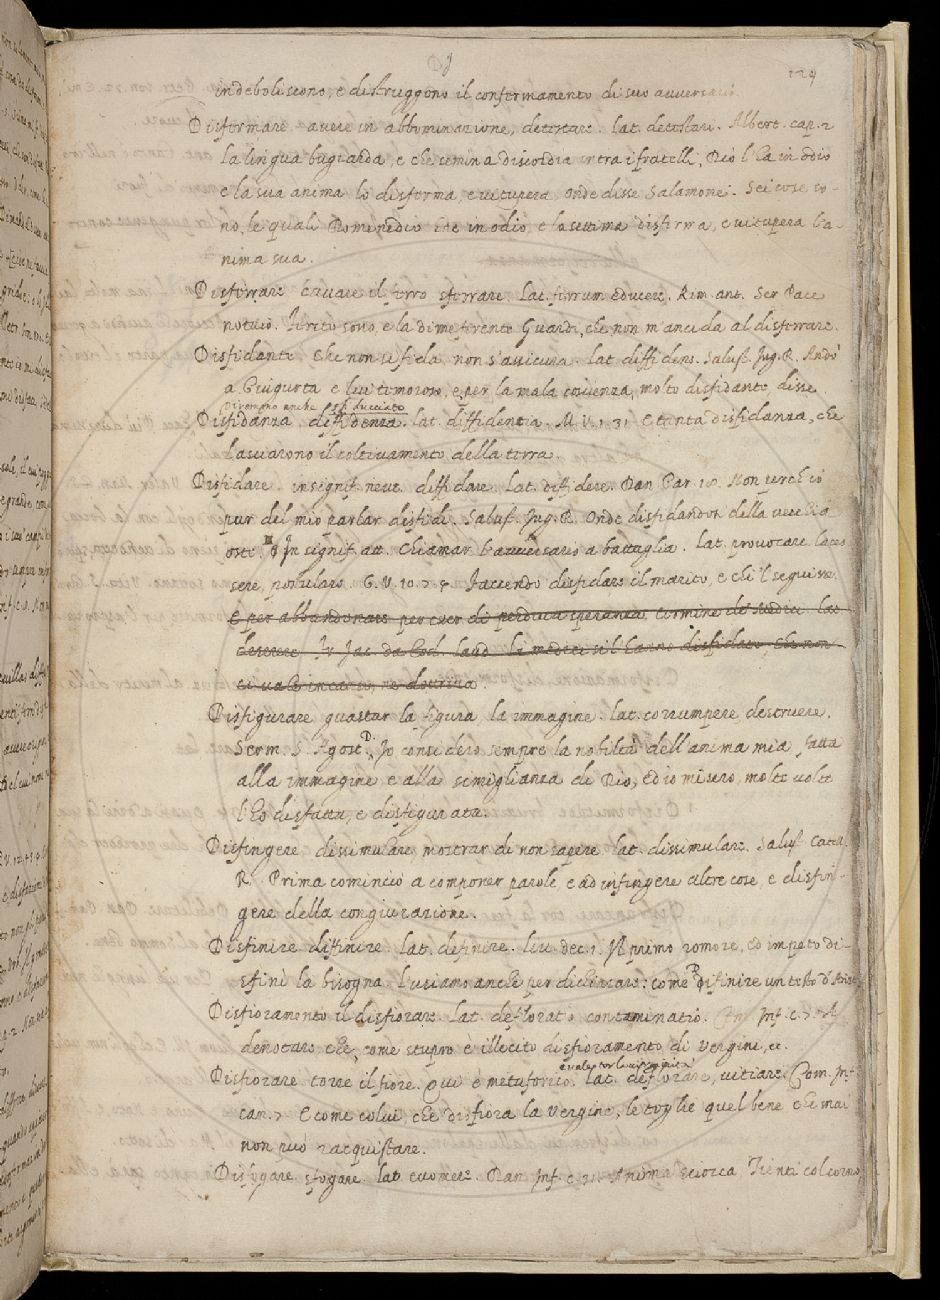 Dif
129
indeboliscono, e distruggono il confermamento di suo avversario.
Disformare. avere in abbominazione, detestare. lat. detestari. Albert. cap. 2
la lingua bugiarda, e che semina discordia intra i fratelli, Dio l'ha in odio
e la sua anima lo disforma, e vitupera. onde disse Salamone. Sei cose so-
no, le quali Domenedio ebbe in odio, e la settima disforma, e vitupera l'a-
nima sua.
Disferrare cavare il ferro sferrare. lat. ferrum educere. Rim. ant. Ser Pace
notaio. Ferito sono, e la di me ferente Guardi, che non m'ancida al disferrare.
Disfidante. che non si fida, non s'assicura. lat. diffidens. Salust. Jug. R. Andò
a Giugurta e lui temoroso, e per la mala coscienza, molto disfidante disse
Diremmo anche sfiducciato
Disfidanza. diffidenza. lat. diffidentia. M.V. 1. 31 E tanta disfidanza, che
lasciarono il coltivamento della terra.
Disfidare. in signif. neut. diffidare. lat. diffidere. Dan. Par. 10. Non perch' io
pur del mio parlar disfidi. Salust. Jug. R. Onde disfidandosi della vecchia
oste. In signif. att. Chiamar l'avversario a battaglia. lat. provocare laces
sere, . G.V. 10. 7. 4. Faccendo disfidare il marito, e chi 'l seguisse
E per abbandonare per cuer di perduta speranza, termine de' medici. lat.
deserere. Fr. Jac. da Tod. laud. li medici sì l'hanno disfidato, che non
ci vale incanto, ne dottrina.
Disfigurare guastar la figura, la immagine. lat. corrumpere, destruere.
Serm. S. Agost. D. Io considero sempre la nobiltà dell'anima mia, fatta
alla immagine e alla simiglianza di Dio, ed io misero, molte volte
l'ho disfatta, e disfigurata.
Disfingere dissimulare, mostrar di non sapere. lat. dissimulare. Salust. Catel.
R. Prima cominciò a componer parole, e ad infingere altre cose, e disfin-
gere della congiurazione.
Disfinire difinire. lat. definire. liv. dec. 1. Il primo romore, ed impeto di-
sfinì la bisogna. l'usiamo anche per dichiarare: come Difinire un testo d'Arist.
Disfioramento il disfiorare. lat. defloratio contaminatio. Com. Inf. c. 7. A
denotare che, come stupro e illecito disfioramento di vergine, ec.
e vale tor la verginità
Disfiorare torre il fiore. Qui è metaforico. lat. deflorare, vitiare. Com. Inf.
can. 7 E come colui, che disfiora la vergine, le toglie quel bene che mai
non può racquistare.
Disfogare. sfogare. lat. evomere. Dan. Inf. c. 31. Anima sciocca Tienti col corno